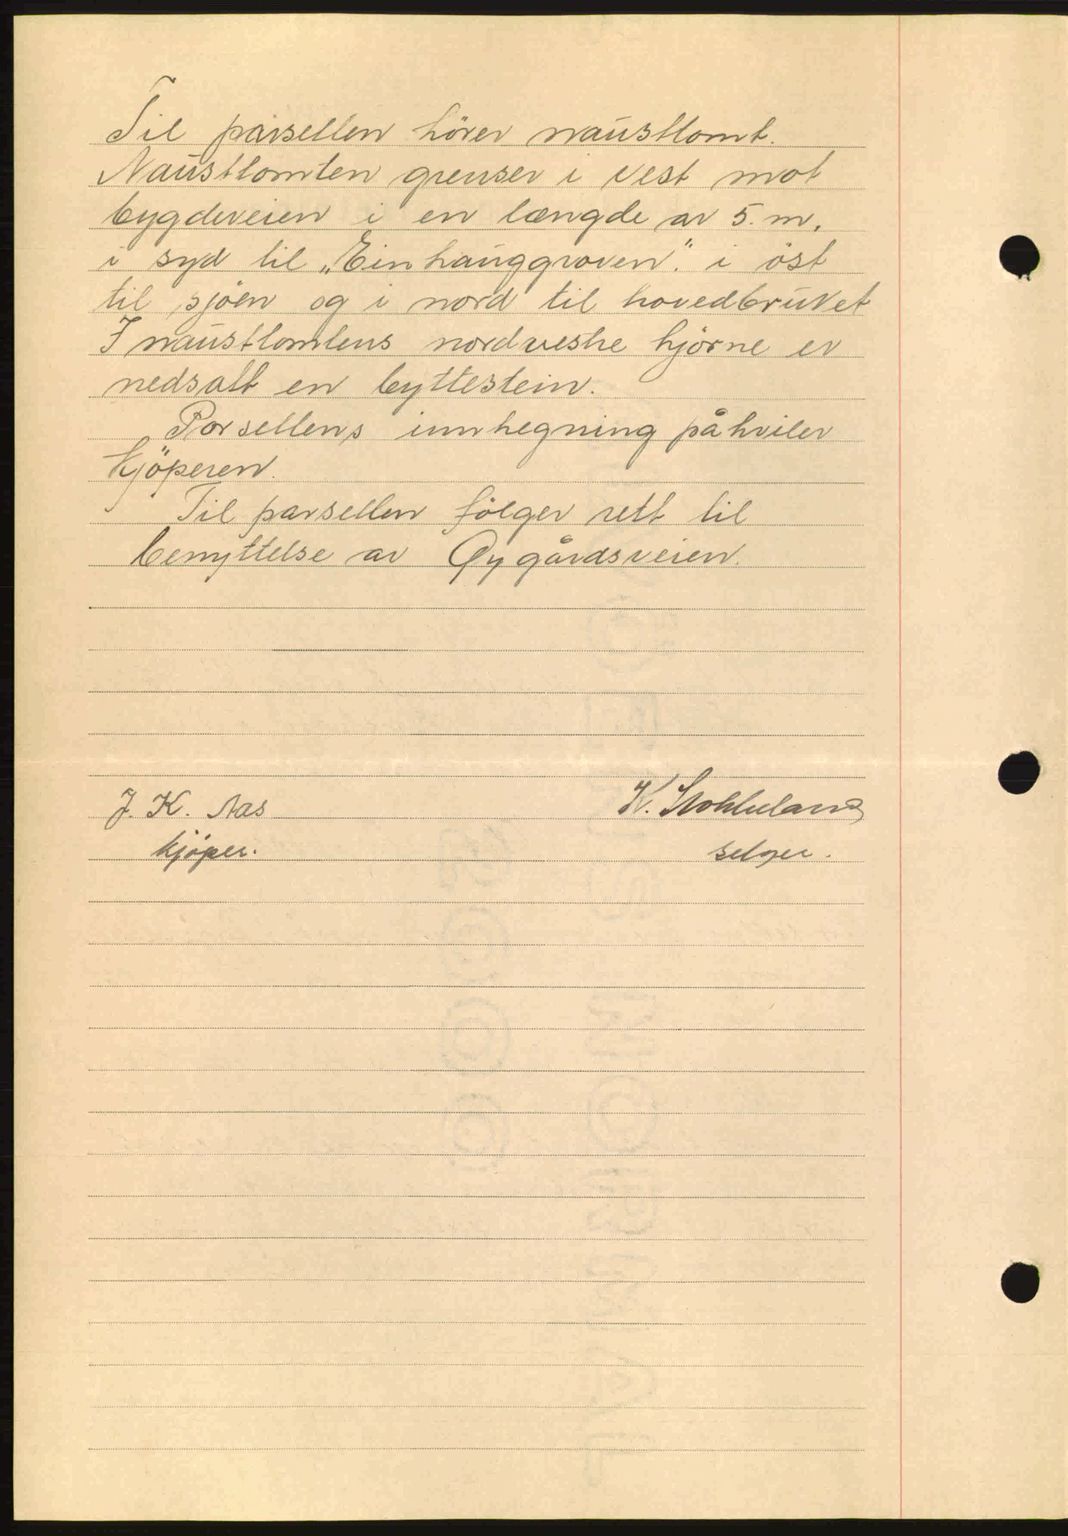 Til parsellen hörer naustlomt.
Naustlomten grenser i vest mot
bygdeveien i en længde av 5. m.
i syd til „Einhauggroven". i öst
til sjöen og i nord til hovedbruket
I naustlomtens nordvestre hjörne er
nedsatt en byttestein.
Parsellens innhegning påhviler
kjöperen.
Til parsellen fölger rett til
benyttelse av Øygårdsveien.
J. K. Aas
K.
kjöper.
selger.